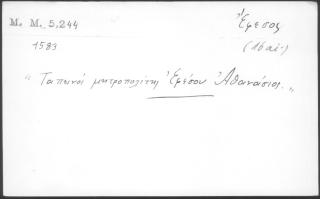 M. M. 5,244
Ἔφεσος
1583
(16 αἰ.)
" Ταπινοί μητροπολίτης Ἐφέσου Ἀθανάσιος. "